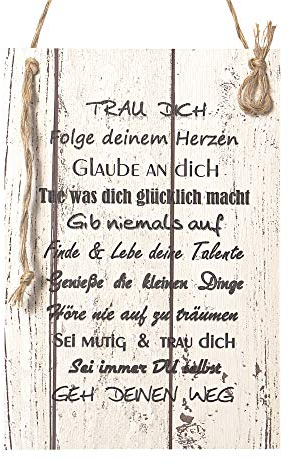 TRAU DICH
Folge deinem Herzen
GLAUBE AN dich
Tue was dich glücklich macht
Gib niemals auf
Finde & Lebe deine Talente
Genieße die kleinen Dinge
Höre nie auf zu träumen
SEI MUTIG & TRAU dich
Sei immer DU selbst
GEH DEINEN WEG